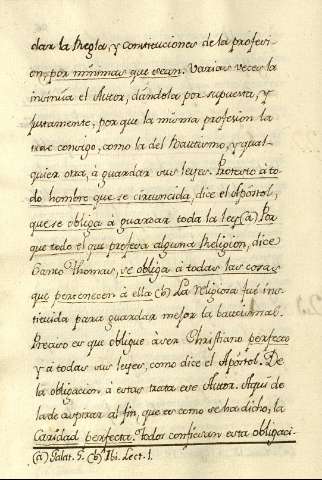 dar la Regla, y constituciones de la profesi-
on, por minimas que sean. Varias veces la
insinúa el Autor, dandola por supuesta, y
justamente: por que la misma profesion la
trae consigo, como la del Bautismo, y qual-
quier otra, á guardar sus leyes. Protesto á to-
do hombre que se circuncida, dice el Apóstol,
que se obliga á guardar toda la ley (a) Por
que todo el que profesa alguna Religion, dice
Santo Thomas, se obliga á todas las cosas
que pertenecen á ella (b) La religiosa fue ins-
tituida para guardar mejor la bautismal.
Preciso es que obligue á ser Christiano perfecto
y á todas sus leyes, como dice el Apóstol. De
la obligacion á estas trata ese Autor. Aqui de
la de aspirar al fin, que es como se ha dicho, la
Caridad perfecta. Todos confiesan esta obligaci-
(a) Galat. 5. (b) Ibi. Lect. 1.